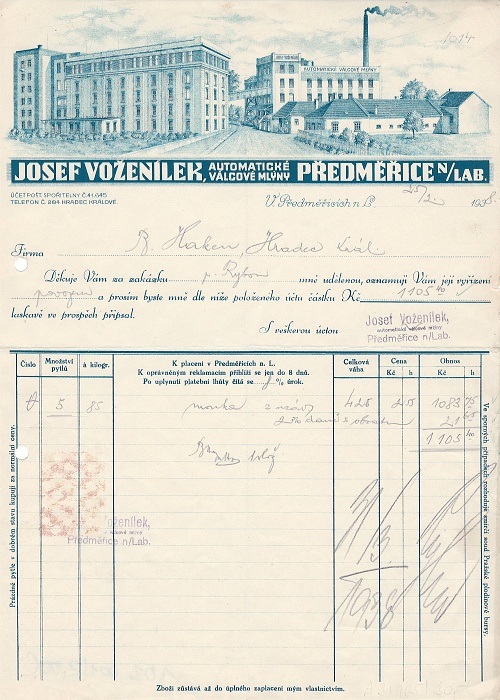 1014
JOSEF VOŽENÍLEK
AUTOMATICKÉ VÁLCOVÉ MLÝNY
JOSEF VOŽENÍLEK, AUTOMATICKÉ VÁLCOVÉ MLÝNY PŘEDMĚŘICE N/LAB.
ÚČET POŠT. SPOŘITELNY Č. 41.645
TELEFON Č. 284 HRADEC KRÁLOVÉ.
V Předměřicích n L. 25/2. 1938.
Firma B. Haken, Hradec Král.
Děkuje Vám za zakázku p. Rybou mně udělenou, oznamuji Vám její vyřízení
a prosím byste mně dle níže položeného účtu částku Kč 1105 40
laskavě ve prospěch připsal.
S veškerou úctou
Josef Voženílek,
automatické válcové mlýny
Předměřice n/Lab.
Číslo Množství pytlů à kilogr. K placení v Předměřicích n. L. Celková váha Cena Kč h Obnos Kč h
K oprávněným reklamacím přihlíží se jen do 8 dnů.
Po uplynutí platební lhůty čítá se % úrok.
0 5 85 mouka 425 2 55 1083 75
2% daně z obratu 21 65
1105 40
Voženílek,
Předměřice n/Lab.
31/3 1938
Prázdné pytle v dobrém stavu kupuji za normální ceny.
Ve sporných případech rozhoduje smírčí soud Pražské plodinové bursy.
Zboží zůstává až do úplného zaplacení mým vlastnictvím.